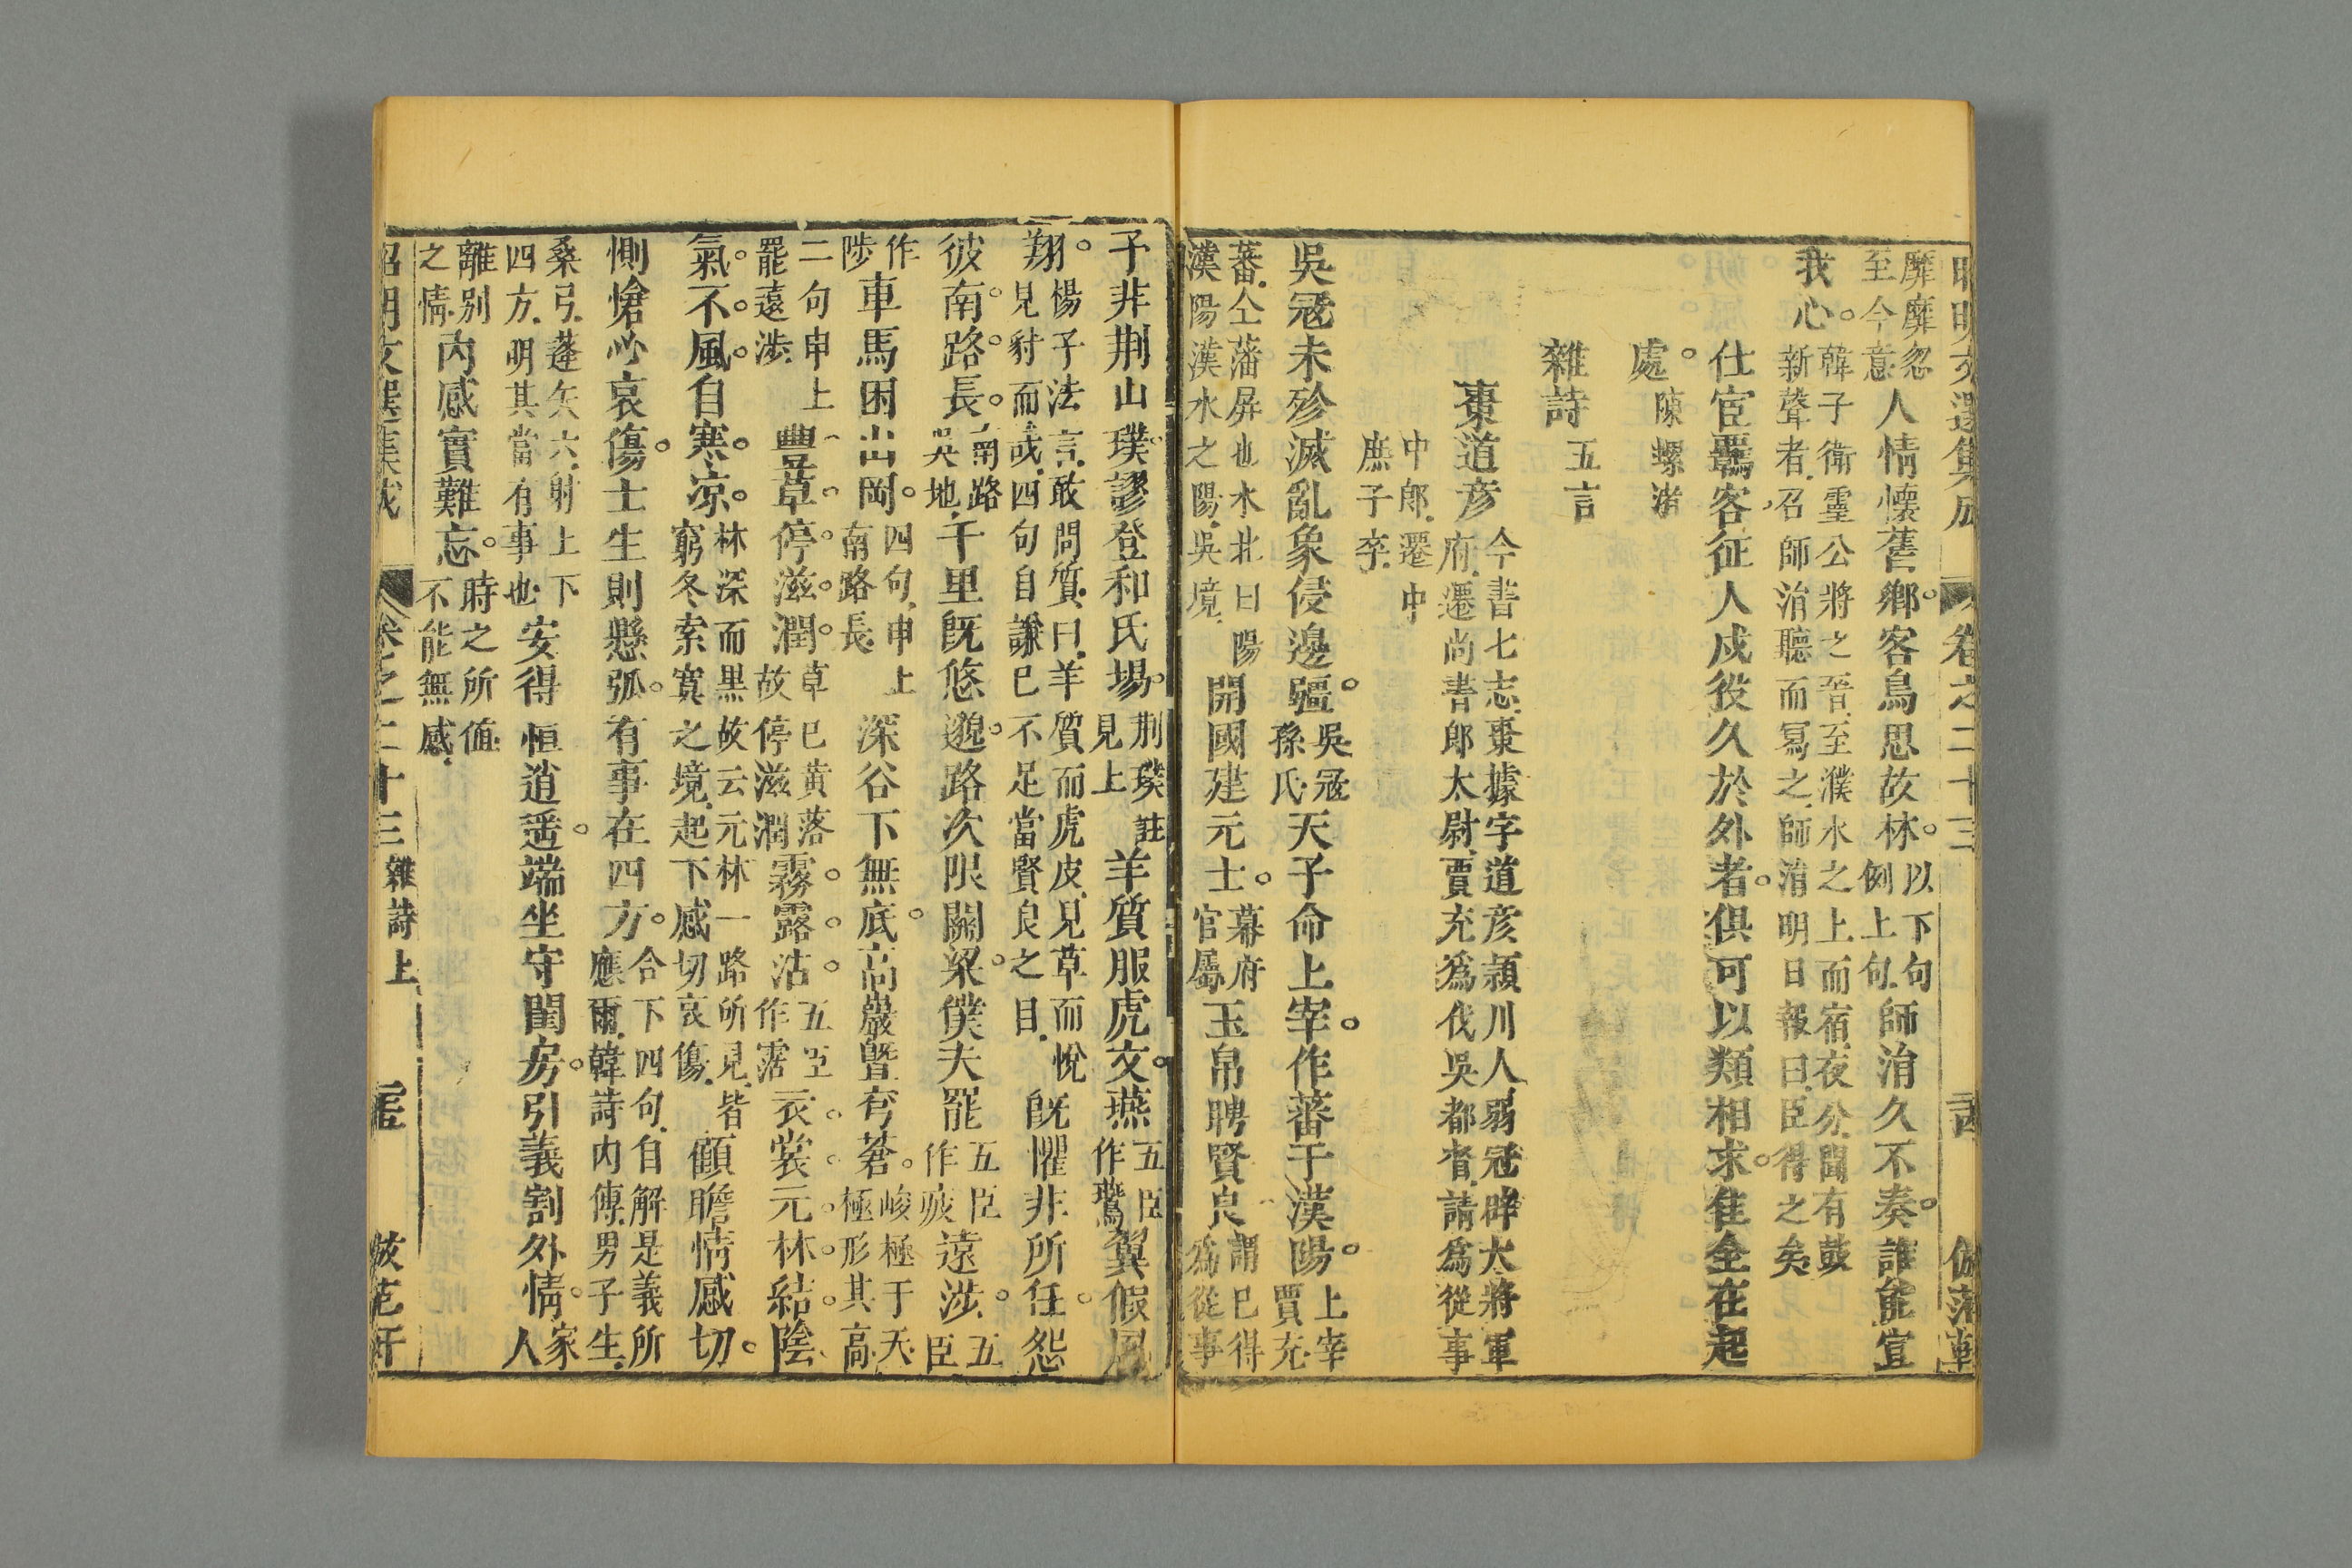 昭明文選集成 卷之二十三 倣范軒
靡靡忽至今意人情懷舊鄉客鳥思故林以下句例上句師涓久不奏誰能宣
我心韓子衛靈公將之晉至濮水之上而宿夜分聞有鼓新聲者召師涓聽而寫之師涓明日報曰臣得之矣
仕宦羈客征人戍役久於外者俱可以類相求隹全在起
處陳螺渚
雜詩五言
棗道彥今書七志棗據字道彥潁川人弱冠辟大將軍府遷尚書郎太尉賈充為伐吳都督請為從事
中郎遷中庶子卒
吳冦未殄滅亂象侵邊疆吳冦孫氏天子命上宰作蕃于漢陽上宰賈充
蕃仝藩屏也水北曰陽漢陽漢水之陽吳境開國建元士幕府官屬玉帛聘賢良謂已得為從事
子非荆山璞謬登和氏場荆璞註見上羊質服虎文燕五臣作鷰翼假鳳
翔楊子法言敢問質曰羊質而虎皮見草而悅見豺而戎四句自謙已不足當賢良之目既懼非所任怨
彼南路長南路吳地千里既悠邈路次限關梁僕夫罷五臣作疲遠涉五臣
作陟車馬困山岡四句申上南路長深谷下無底高巖曁穹蒼峻極于天極形其高
二句申上罷遠涉豐草停滋潤草已黃落故停滋潤霧露沾五臣作霑衣裳元林結陰
氣不風自寒凉林深而黑故云元林一路所見皆窮冬索寞之境起下感切哀傷顧瞻情感切
惻愴心哀傷士生則懸弧有事在四方合下四句自解是義所應爾韓詩內傳男子生
桑弓蓬矢六射上下四方明其當有事也安得恒逍遥端坐守閨房引義割外情家人
離别之情內感實難忘時之所值不能無感
昭明文選集成 卷之二十三雜詩上 倣范軒